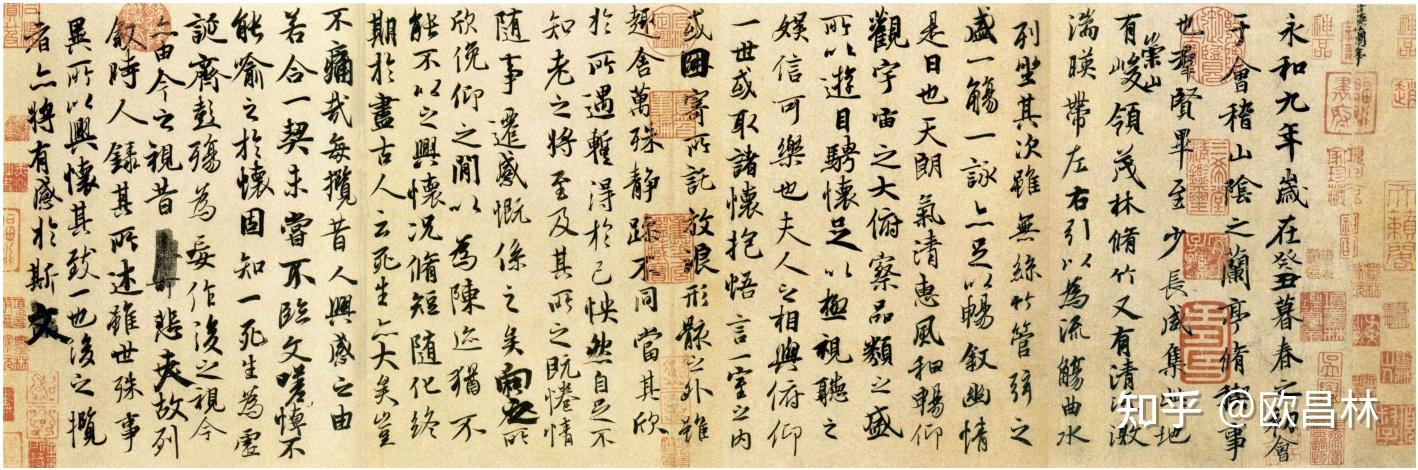 永和九年歲在癸丑暮春之初會
于會稽山陰之蘭亭脩稧事
也羣賢畢至少長咸集此地
有崇山峻領茂林脩竹又有清流激
湍暎帶左右引以為流觴曲水
列坐其次雖無絲竹管弦之
盛一觴一詠亦足以暢敘幽情
是日也天朗氣清惠風和暢仰
觀宇宙之大俯察品類之盛
所以遊目騁懷足以極視聽之
娛信可樂也夫人之相與俯仰
一世或取諸懷抱悟言一室之內
或因寄所託放浪形骸之外雖
趣舍萬殊靜躁不同當其欣
於所遇暫得於己怏然自足不
知老之將至及其所之既惓情
隨事遷感慨係之矣向之所
欣俛仰之閒以為陳迹猶不
能不以之興懷況脩短隨化終
期於盡古人云死生亦大矣豈
不痛哉每攬昔人興感之由
若合一契未嘗不臨文嗟悼不
能喻之於懷固知一死生為虛
誕齊彭殤為妄作後之視今
亦由今之視昔悲夫故列
敘時人錄其所述雖世殊事
異所以興懷其致一也後之攬
者亦將有感於斯文
知乎 @欧昌林